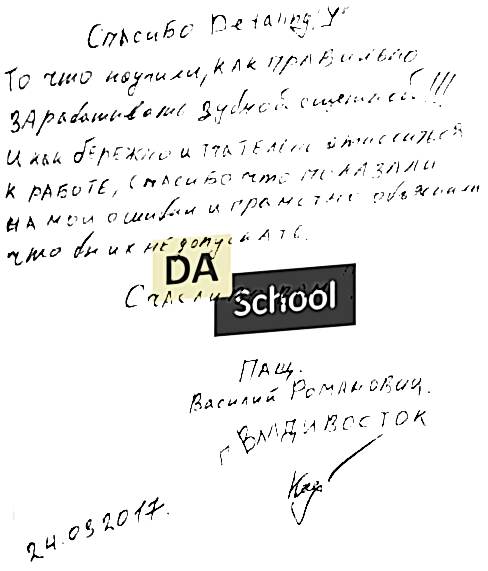 Спасибо Detaling "У"
То что научили, как правильно
зарабатывать зубной щеткой!!!
и как бережно и тчателно относиться
к работе, спасибо что показали
на мои ошибки и грамотно объяснили
что бы их не допускать.
DA
School
Пащ.
Василий Романович.
г Владивосток
24.09.2017.